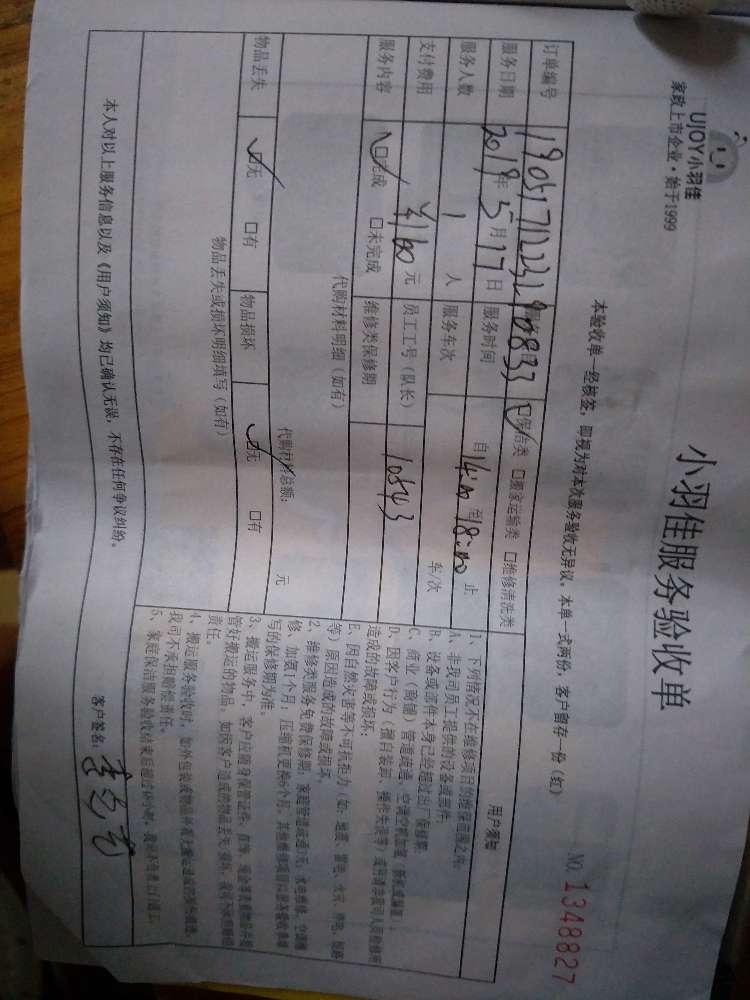 UJOY小羽佳
家政上市企业·始于1999
小羽佳服务验收单
NO. 1348827
本验收单一经核签，即视为对本次服务验收无异议，本单一式两份，客户留存一份（红）
订单编号 服务项目 ☑保洁类 □搬家运输类 □维修清洗类
服务日期 2019年5月17日 服务时间 自14:00至18:00止
服务人数 1人 服务车次 车/次
支付费用 ¥160元 员工工号（队长） 105743
服务内容 ☑完成 □未完成 维修类保修期
代购材料明细（如有）
代购材料总额： 元
物品丢失 ☑无 □有 物品损坏 ☑无 □有
物品丢失或损坏明细填写（如有）
用户须知
1、下列情况不在维修项目的维保范围之内：
A、非我司员工提供的设备或部件；
B、设备或部件本身已经超过出厂保修期；
C、商业（商铺）管道疏通、空调空调加氟（新机或漏氟）；
D、因客户行为（擅自装卸、操作失误等）或所请非我司人员检修所
造成的故障或损坏；
E、因自然灾害等不可抗拒力（如：地震、雷电、火灾、停电、短路
等）原因造成的故障或损坏。
2、维修类服务免费保修期：家庭管道疏通7天，水电维修、空调维
修、加氟1个月，压缩机更换6个月，其他维修项目以服务验收单填
写的保修期为准。
3、搬运服务中，客户应随身保管证件、首饰、现金等贵重物品并看
管好搬运的物品，如因客户造成的物品丢失、损坏，我司不承担赔偿
责任。
4、搬运服务验收时，如外包装或物品外观无搬运造成的损伤痕迹，
我司不承担赔偿责任。
5、家庭保洁服务验收结束后超过48小时，我司不负责上门返工。
本人对以上服务信息以及《用户须知》均已确认无误，不存在任何争议纠纷。
客户签名：